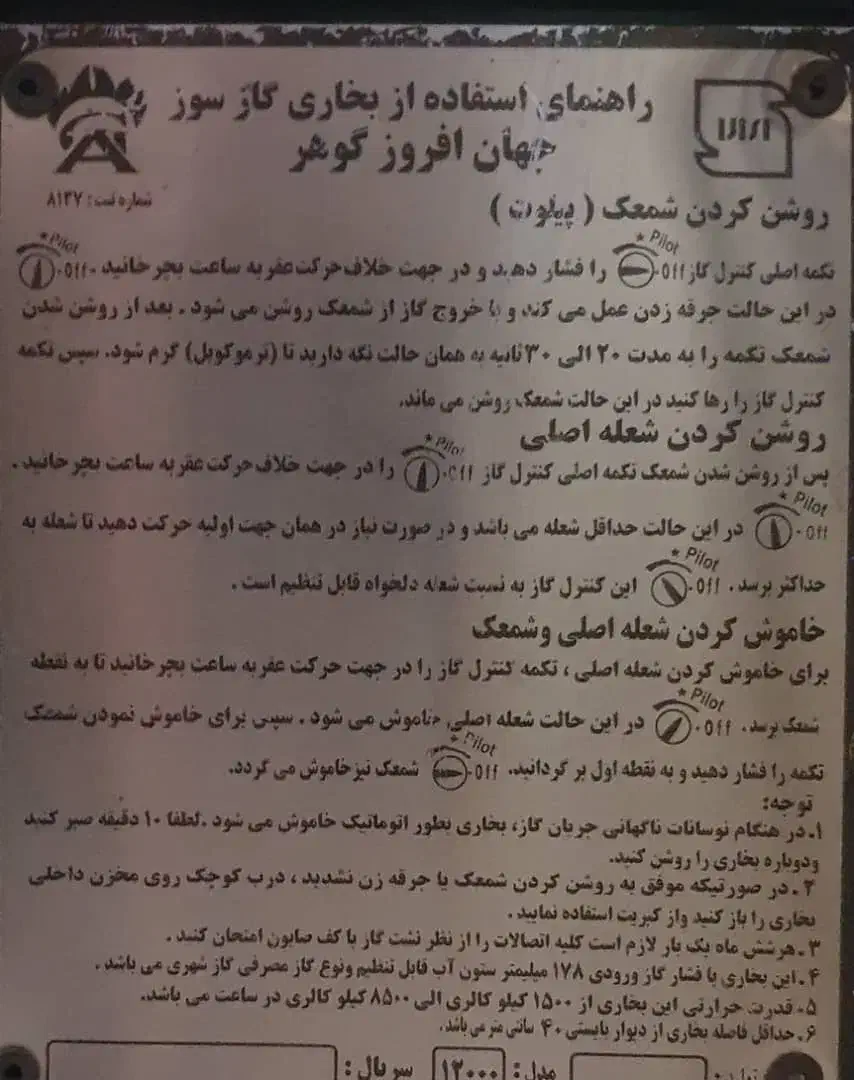 راهنمای استفاده از بخاری گاز سوز
جهان افروز گوهر
شماره ثبت: ۸۱۳۷
روشن کردن شمعک ( پیلوت )
تکمه اصلی کنترل گاز Off Pilot را فشار دهید و در جهت خلاف حرکت عقربه ساعت بچرخانید Off Pilot
در این حالت جرقه زدن عمل می کند و با خروج گاز از شمعک روشن می شود . بعد از روشن شدن
شمعک تکمه را به مدت ۲۰ الی ۳۰ ثانیه به همان حالت نگه دارید تا (ترموکوپل) گرم شود. سپس تکمه
کنترل گاز را رها کنید در این حالت شمعک روشن می ماند.
روشن کردن شعله اصلی
پس از روشن شدن شمعک تکمه اصلی کنترل گاز Off Pilot را در جهت خلاف حرکت عقربه ساعت بچرخانید .
Off Pilot در این حالت حداقل شعله می باشد و در صورت نیاز در همان جهت اولیه حرکت دهید تا شعله به
حداکثر برسد . Off Pilot این کنترل گاز به نسبت شعله دلخواه قابل تنظیم است .
خاموش کردن شعله اصلی وشمعک
برای خاموش کردن شعله اصلی ، تکمه کنترل گاز را در جهت حرکت عقربه ساعت بچرخانید تا به نقطه
شمعک برسد . Off Pilot در این حالت شعله اصلی خاموش می شود . سپس برای خاموش نمودن شمعک
تکمه را فشار دهید و به نقطه اول بر گردانید. Off Pilot شمعک نیز خاموش می گردد.
توجه:
۱.در هنگام نوسانات ناگهانی جریان گاز، بخاری بطور اتوماتیک خاموش می شود .لطفا ۱۰ دقیقه صبر کنید
ودوباره بخاری را روشن کنید.
۲ .در صورتیکه موفق به روشن کردن شمعک یا جرقه زن نشدید ، درب کوچک روی مخزن داخلی
بخاری را باز کنید واز کبریت استفاده نمایید .
۳ .هرشش ماه یک بار لازم است کلیه اتصالات را از نظر نشت گاز با کف صابون امتحان کنید .
۴ .این بخاری با فشار گاز ورودی ۱۷۸ میلیمتر ستون آب قابل تنظیم ونوع گاز مصرفی گاز شهری می باشد .
۵.قدرت حرارتی این بخاری از ۱۵۰۰ کیلو کالری الی ۸۵۰۰ کیلو کالری در ساعت می باشد.
۶.حداقل فاصله بخاری از دیوار بایستی ۴۰ سانتی متر می باشد.
مدل: ۱۲۰۰۰ سریال: